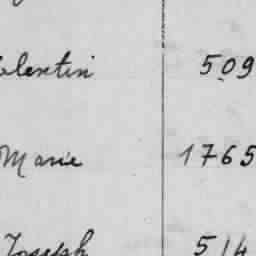 Valentin 509
Marie 1765
Joseph 514